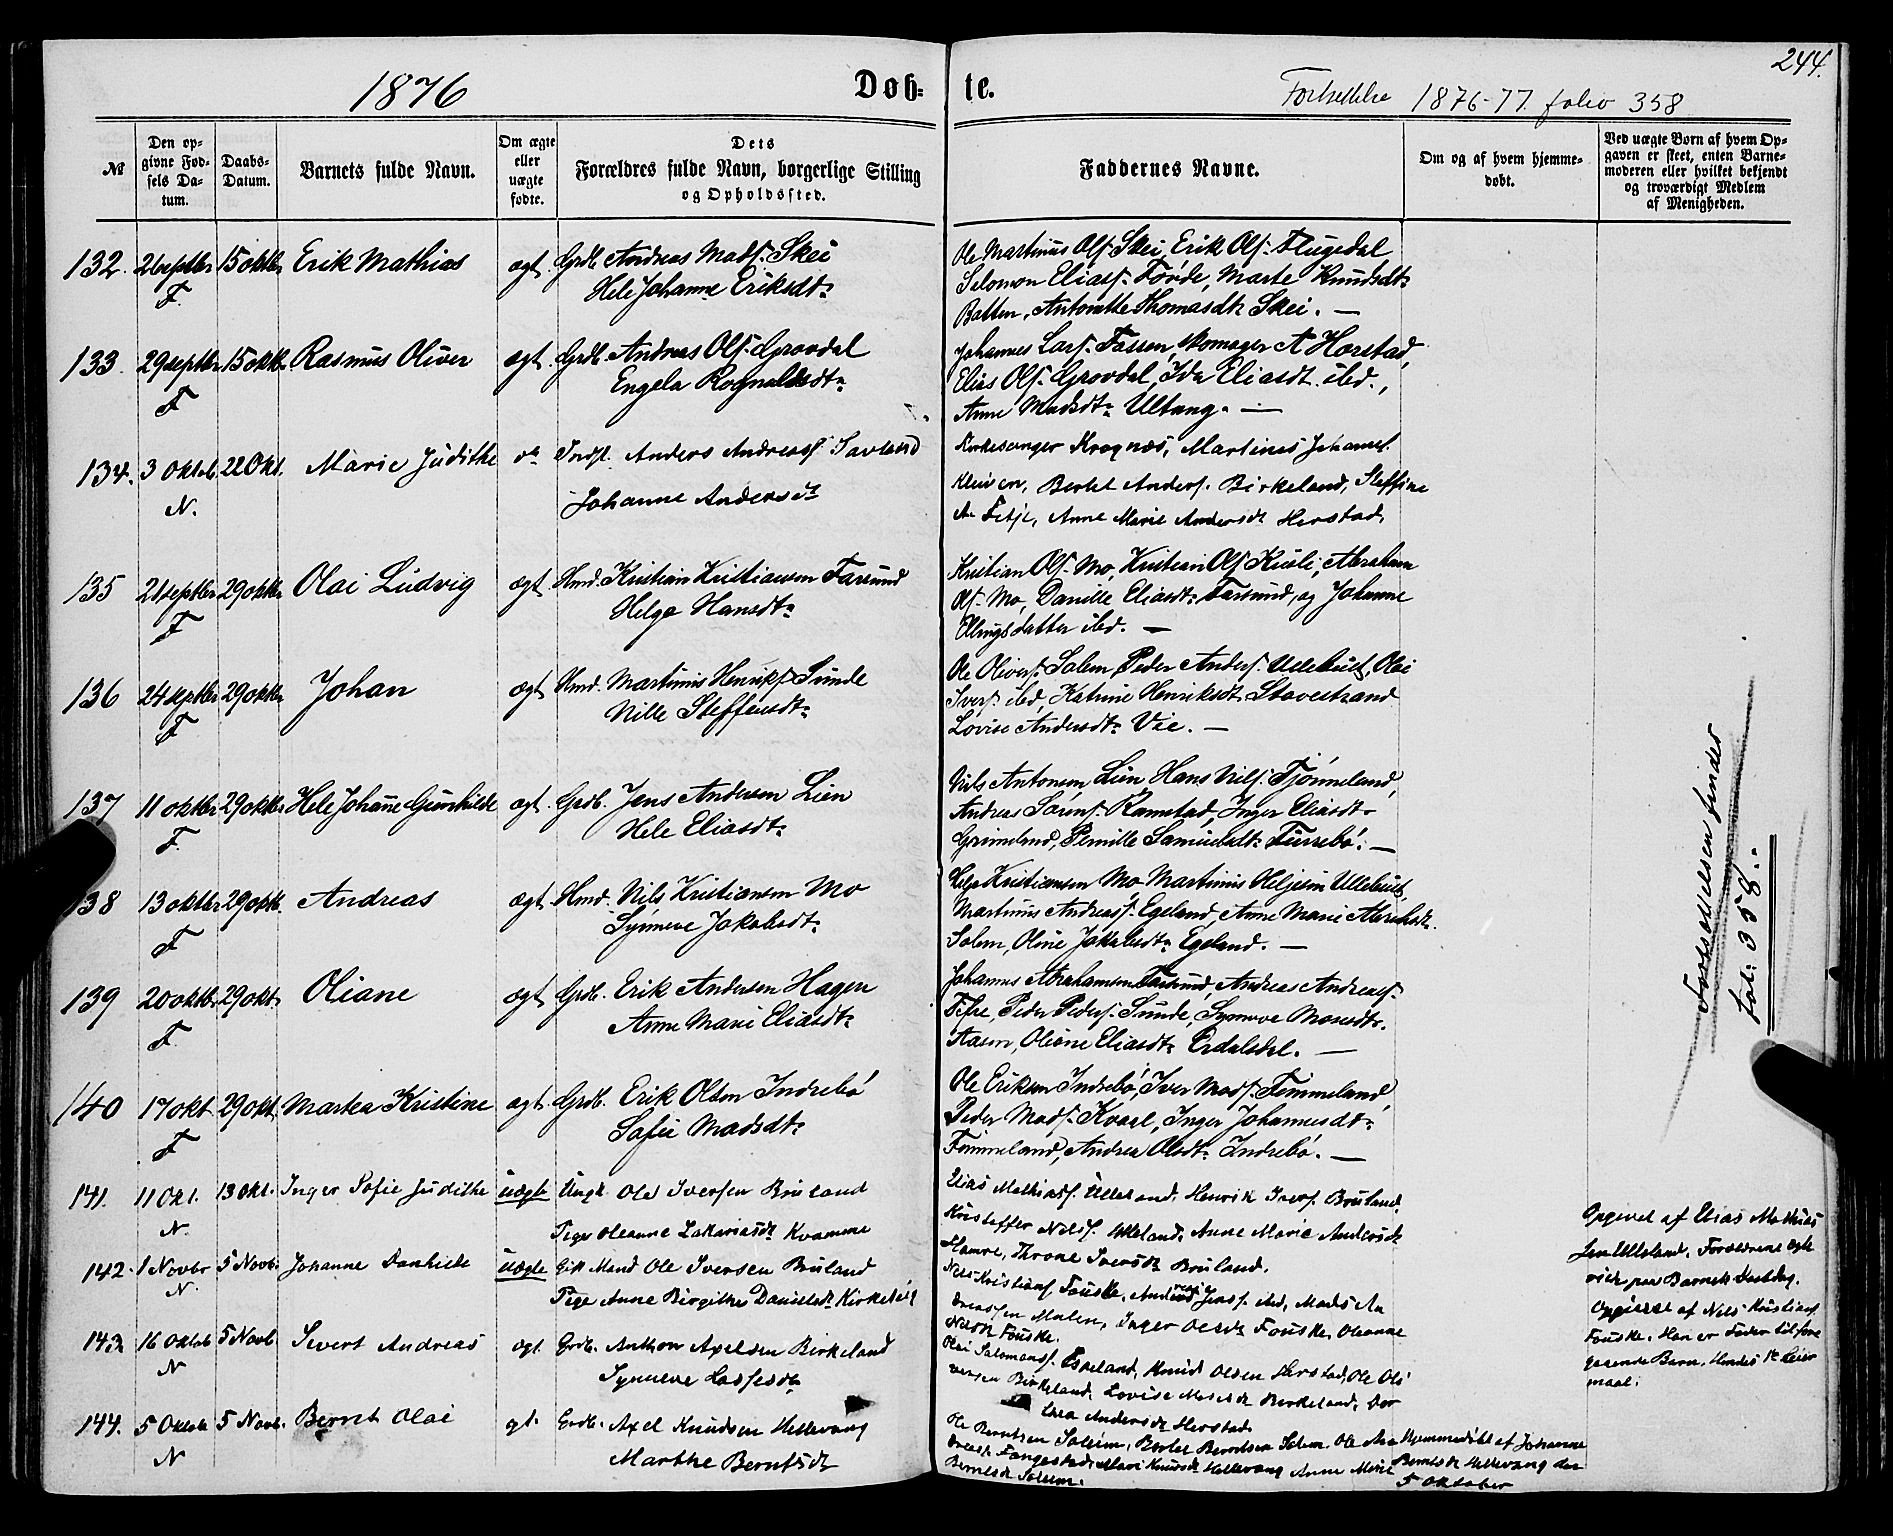 244.
1876 Døb= te. Fortsettelse 1876-77. folio 358
№ Den op-givne Fød-sels Da-tum. Daabs-Datum. Barnets fulde Navn. Om ægte eller uægte fødte. Dets Forældres fulde Navn, borgerlige Stilling og Opholdssted. Faddernes Navne. Om og af hvem hjemme-døbt. Ved uægte Børn af hvem Op-gaven er skeet, enten Barne-moderen eller hvilket bekjendt og troværdigt Medlem af Menigheden.
132. 2septbr 15oktbr Erik Mathias ægt. Grdb. Andreas Mads. Skei
F. Hele Johanne Eriksdt:
Ole Martinus Ols. Skei, Erik Ols. Flugedal
Salomon Elias. Förde, Marte Knudsdt:
Batten, Antonette Thomasdt. Skei. —
133. 29septbr 15oktbr Rasmus Oliver ægt. Grdb. Andreas Ols. Grovdal
F Engela Rognaldsdt:
Johannes Lars. Fossen, skomager A Horstad,
Elias Ols. Grovdal, Ida Eliasdt. ibd.,
Anne Madsdt: Ultang. —
134. 3 Oktob. 22 Okt. Marie Judithe do Indst. Anders Andreas. Savland
N. Johanne Andersdt
Kirkesanger Krognæs, Martines Johannes.
Kleiven, Bertel Anders. Birkeland, Steffine
A. Fitje, Anne Marie Andersdt Herstad.
135 21septbr 29oktbr Olai Ludvig ægt. Hmd. Kristian Kristiansen Farsund
F Helga Hansdt:
Kristian Ols. Mo, Kristian Ols. Kusli, Abraham
Ols. Mo, Danille Eliasdt: Farsund, og Johanne
Ellingsdatter ibd. —
136 24septbr 29oktbr Johan ægt Hmd. Martinus Henriks. Sunde
F Nille Steffensdt:
Ole Olivers. Solem, Peder Anders. Ullebust, Olai
Ivers. ibd, Katrine Henriksdt. Stavestrand
Lovise Andersdt: Vie. —
137 11oktbr 29oktbr Hele Johanne Gunhilde ægt. Grdb. Jens Andersen Lien
F. Hele Eliasdt:
Nils Antonsen Lien, Hans Nils. Tjönneland,
Andreas Sörens. Ramstad, Inger Eliasdt.
Grimeland, Pernille Samuelsdt: Furrebö. —
138 13oktbr 29oktb. Andreas ægt. Hmd. Nils Kristiansen Mo
F Synneve Jakobsdt:
Helge Kristiansen Mo, Martinus Helgesen Ullebust,
Martinus Andreas. Egeland, Anne Marie Abrahdt.
Solem, Oline Jakobsdt: Egeland. —
139 20oktb. 29okt. Oliane ægt. Grdb. Erik Andersen Hagen
F. Anne Marie Eliasdt:
Johannes Abrahamsen Farsund, Andreas Andreas.
Fifre, Peder Peders. Sunde, Synneve Mosesdt.
Aasen, Oliane Eliasdt: Erdalsdal. —
140 17okt 29okt. Martea Kristine ægt. Grdb. Erik Olsen Indrebö
F Sofie Madsdt:
Ole Eriksen Indrebö, Iver Mads. Fimmeland
Peder Mads. Kvaal, Inger Johannesdt:
Fimmeland, Andrea Olsdt: Indrebö. —
141. 11 Okt. 13 Okt. Inger Sofie Judithe uægte Ungk. Ole Iversen Bruland
N. Pige Oleanne Zakariasdt Kvamme
Elias Mathias. Ulleland, Henrik Ivers. Bruland,
Kristoffer Nils. Ulleland, Anne Marie Andersdt
Hamre, Throne Iversdt Bruland.
Opgivet af Elias Mathias
sen Ulleland. Forældrene ægte
viede paa Barnets Daabsdag.
142. 1 Novbr 5 Novb. Johanne Danhilde uægte Gift Mand Ole Iversen Bruland
N. Pige Anne Birgithe Danielsdt Kirkeeie
Nils Kristians. Fouske, Andreas Jens. Aid, Mads An
dreassen Malen, Inger Olsdt Fouske, Oleanne
Nilsdt Fouske.
Opgivet af Nils Kristians.
Fouske. Han er Fader til fore
gaaende Barn. Hendes 1ste Leier
maal.
143. 16 Oktob 5 Novb. Sivert Andreas ægt. Grdb. Anthon Axelsen Birkeland
N Synneve Lassesdt
Olai Salomons. Espeland, Knud Olsen Herstad, Ole Oli
versen Birkeland, Lovise Mosesdt Birkeland, Dor
thea Andersdt Herstad
144. 5 Oktob 5 Novb. Bernt Olai gt. Grdb. Axel Knudsen Hellevang
N Marthe Berntsdt
Ole Berntsen Soleim, Bertel Berntsen Solem, Ole An
dreas. Fangestad, Mari Knudsdt Hellevang, Anne Marie
Berntsdt Soleim.
Hjemmedöbt af Johanne
Berntsdt Hellevang den
5 Oktober
Fortsættelsen findes
fol: 358.